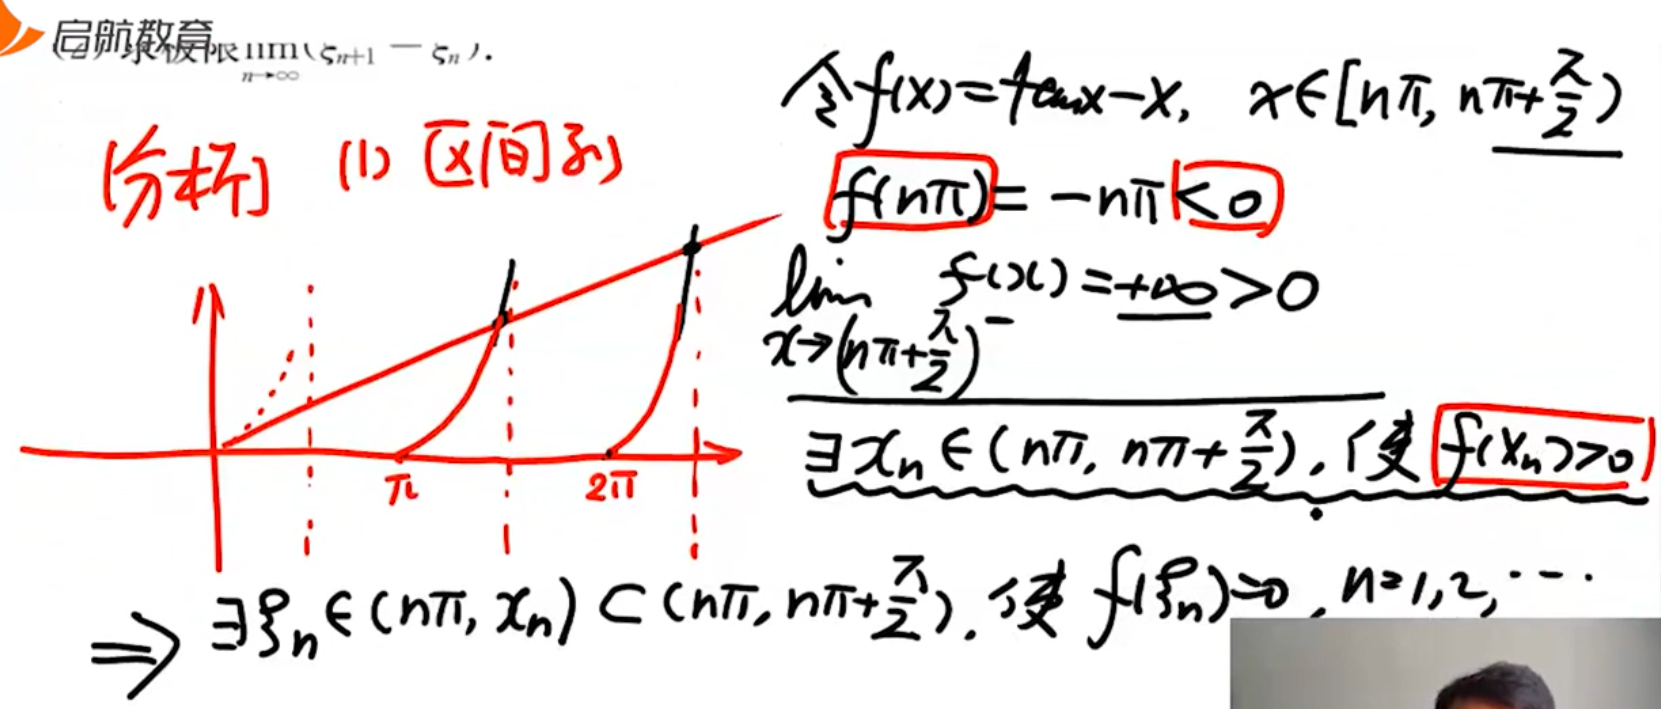 启航教育
(2) 求极限 lim_{n→∞}(ξ_{n+1} − ξ_n).
[分析] (1) 区间列
π 2π
令 f(x)=tanx−x, x∈[nπ, nπ+π/2)
f(nπ)= −nπ<0
lim_{x→(nπ+π/2)⁻} f(x)=+∞>0
∃x_n∈(nπ, nπ+π/2), 使 f(x_n)>0
⇒ ∃ξ_n∈(nπ, x_n)⊂(nπ, nπ+π/2), 使 f(ξ_n)=0, n=1,2,⋯